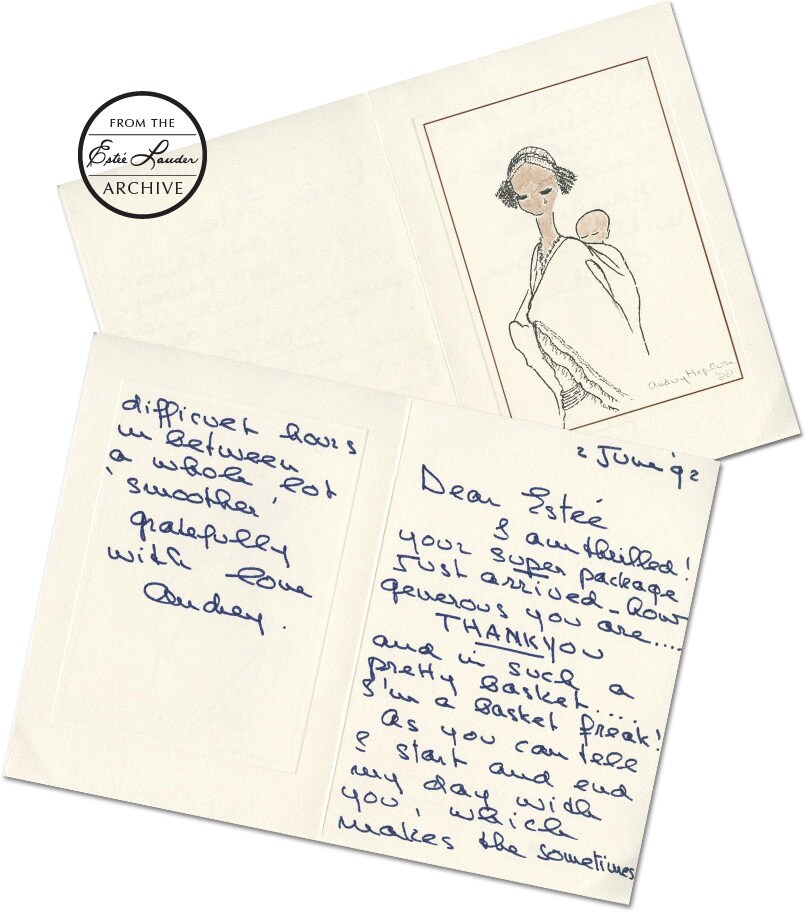 FROM THE
Estée Lauder
ARCHIVE
Audrey Hepburn
2 June '92
Dear Estée
I am thrilled!
your super package
Just arrived - how
generous you are....
THANK YOU
and in such a
pretty basket....
I'm a basket freak!
as you can tell
I start and end
my day with
you, which
makes the sometimes
difficult hours
in between
a whole lot
'smoother'
gratefully
with love
Audrey.